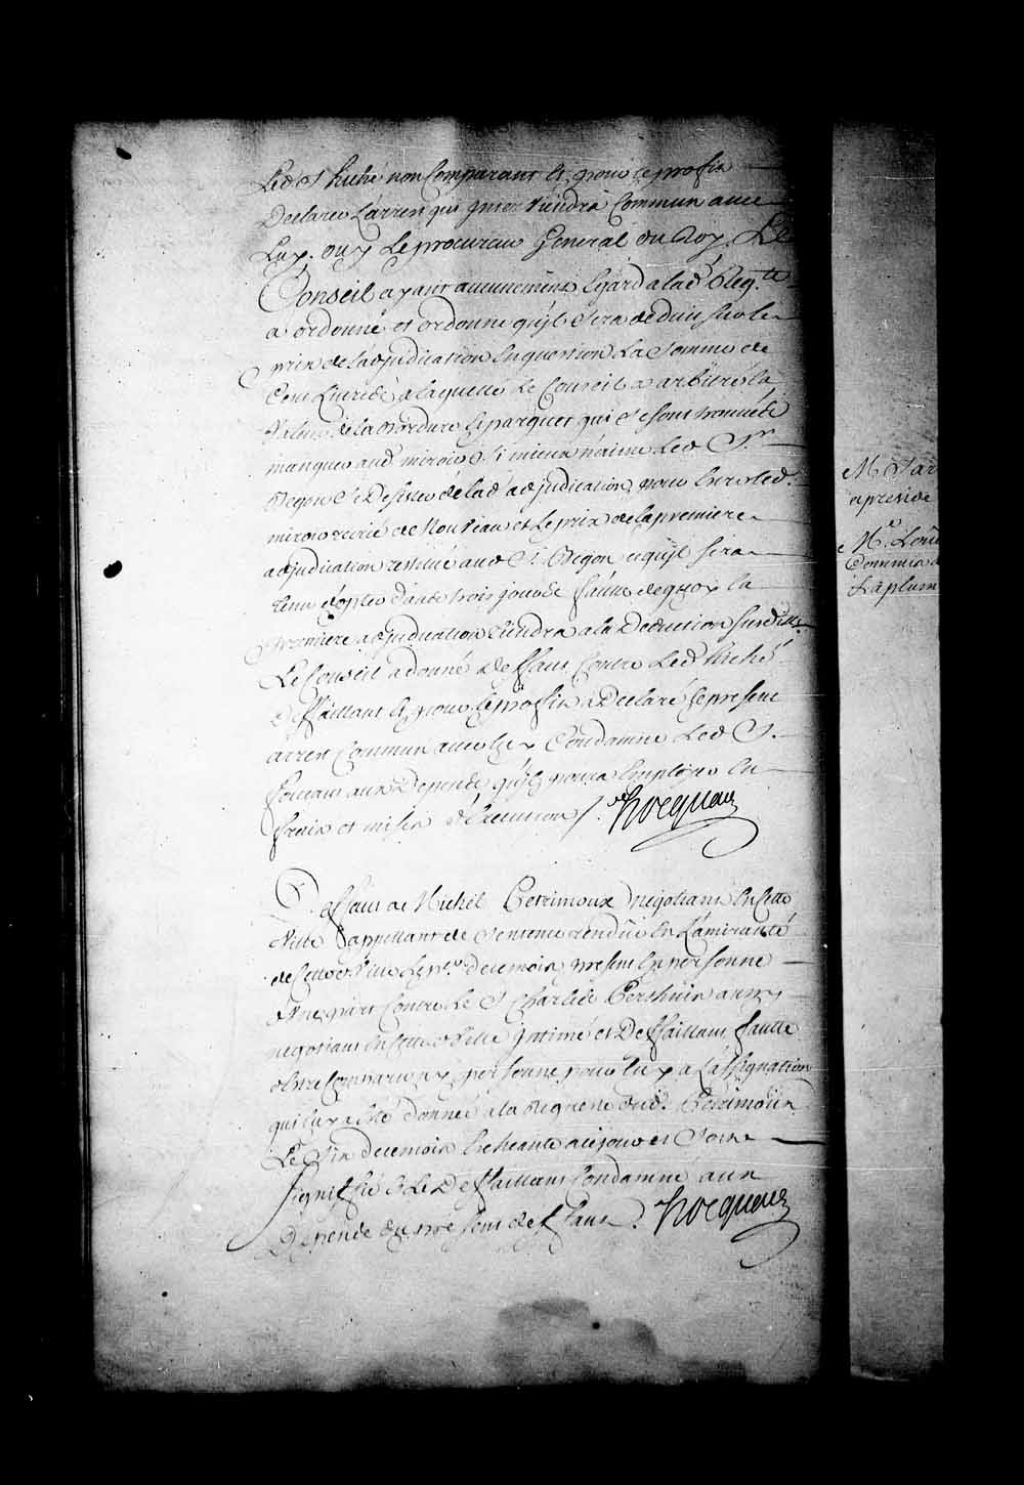 Led S.r huché non Comparant Et pour le proffit
Declarer Larrest qui jnterviendra Commun avec
Luy. ouy Le procureur General du Roy. Le
Conseil ayant aucunement Egard a lad. Req.te
a ordonné et ordonne qu'jl sera deduit sur le
prix de l'adjudication En question La Somme de
Cent Livres a laquelle Le Conseil a arbitré la
Valeur de la Bordure Et parquet qui se sont trouvés
manquer aud. miroir Si mieux n'aime Led S.r
Begon Se Desister de lad. adjudication pour Estre led.
miroir crié de Nouveau et Le prix de la premiere
adjudication restitué aud S.r Begon ce qu'jl sera
tenu d'opter dans trois jours faute de quoy la
premiere adjudication tiendra a la Deduction Susditte
Le Conseil a donné Deffaut Contre Led. huché
Deffaillant Et pour le proffit a Declaré le present
arrest Commun avec luy Condamne Led S.
aux Depends qu'jl pourra Employer En
fraix et mises d'Execution /. Hocquart
Deffaut a Michel Petrimoux Negotiant En Cette
Ville appellant de Sentence rendüe En L'amirauté
de Cette Ville Le p.er de ce mois present En personne
d'Une part Contre Le S.r Charles Perthuis aussy
negotiant En Cette Ville Jntimé et Deffaillant faute
d'estre Comparu ny personne pour luy a L'assignation
qui luy a Eté donnée a la Requeste dud. Petrimoux
Le Six de ce mois Echeante a ce jour et Soit
Signiffié & Le Deffaillant Condamné aux
Depends du present deffaut. Hocquart
M.
a preside
M.e
Commis
La plum